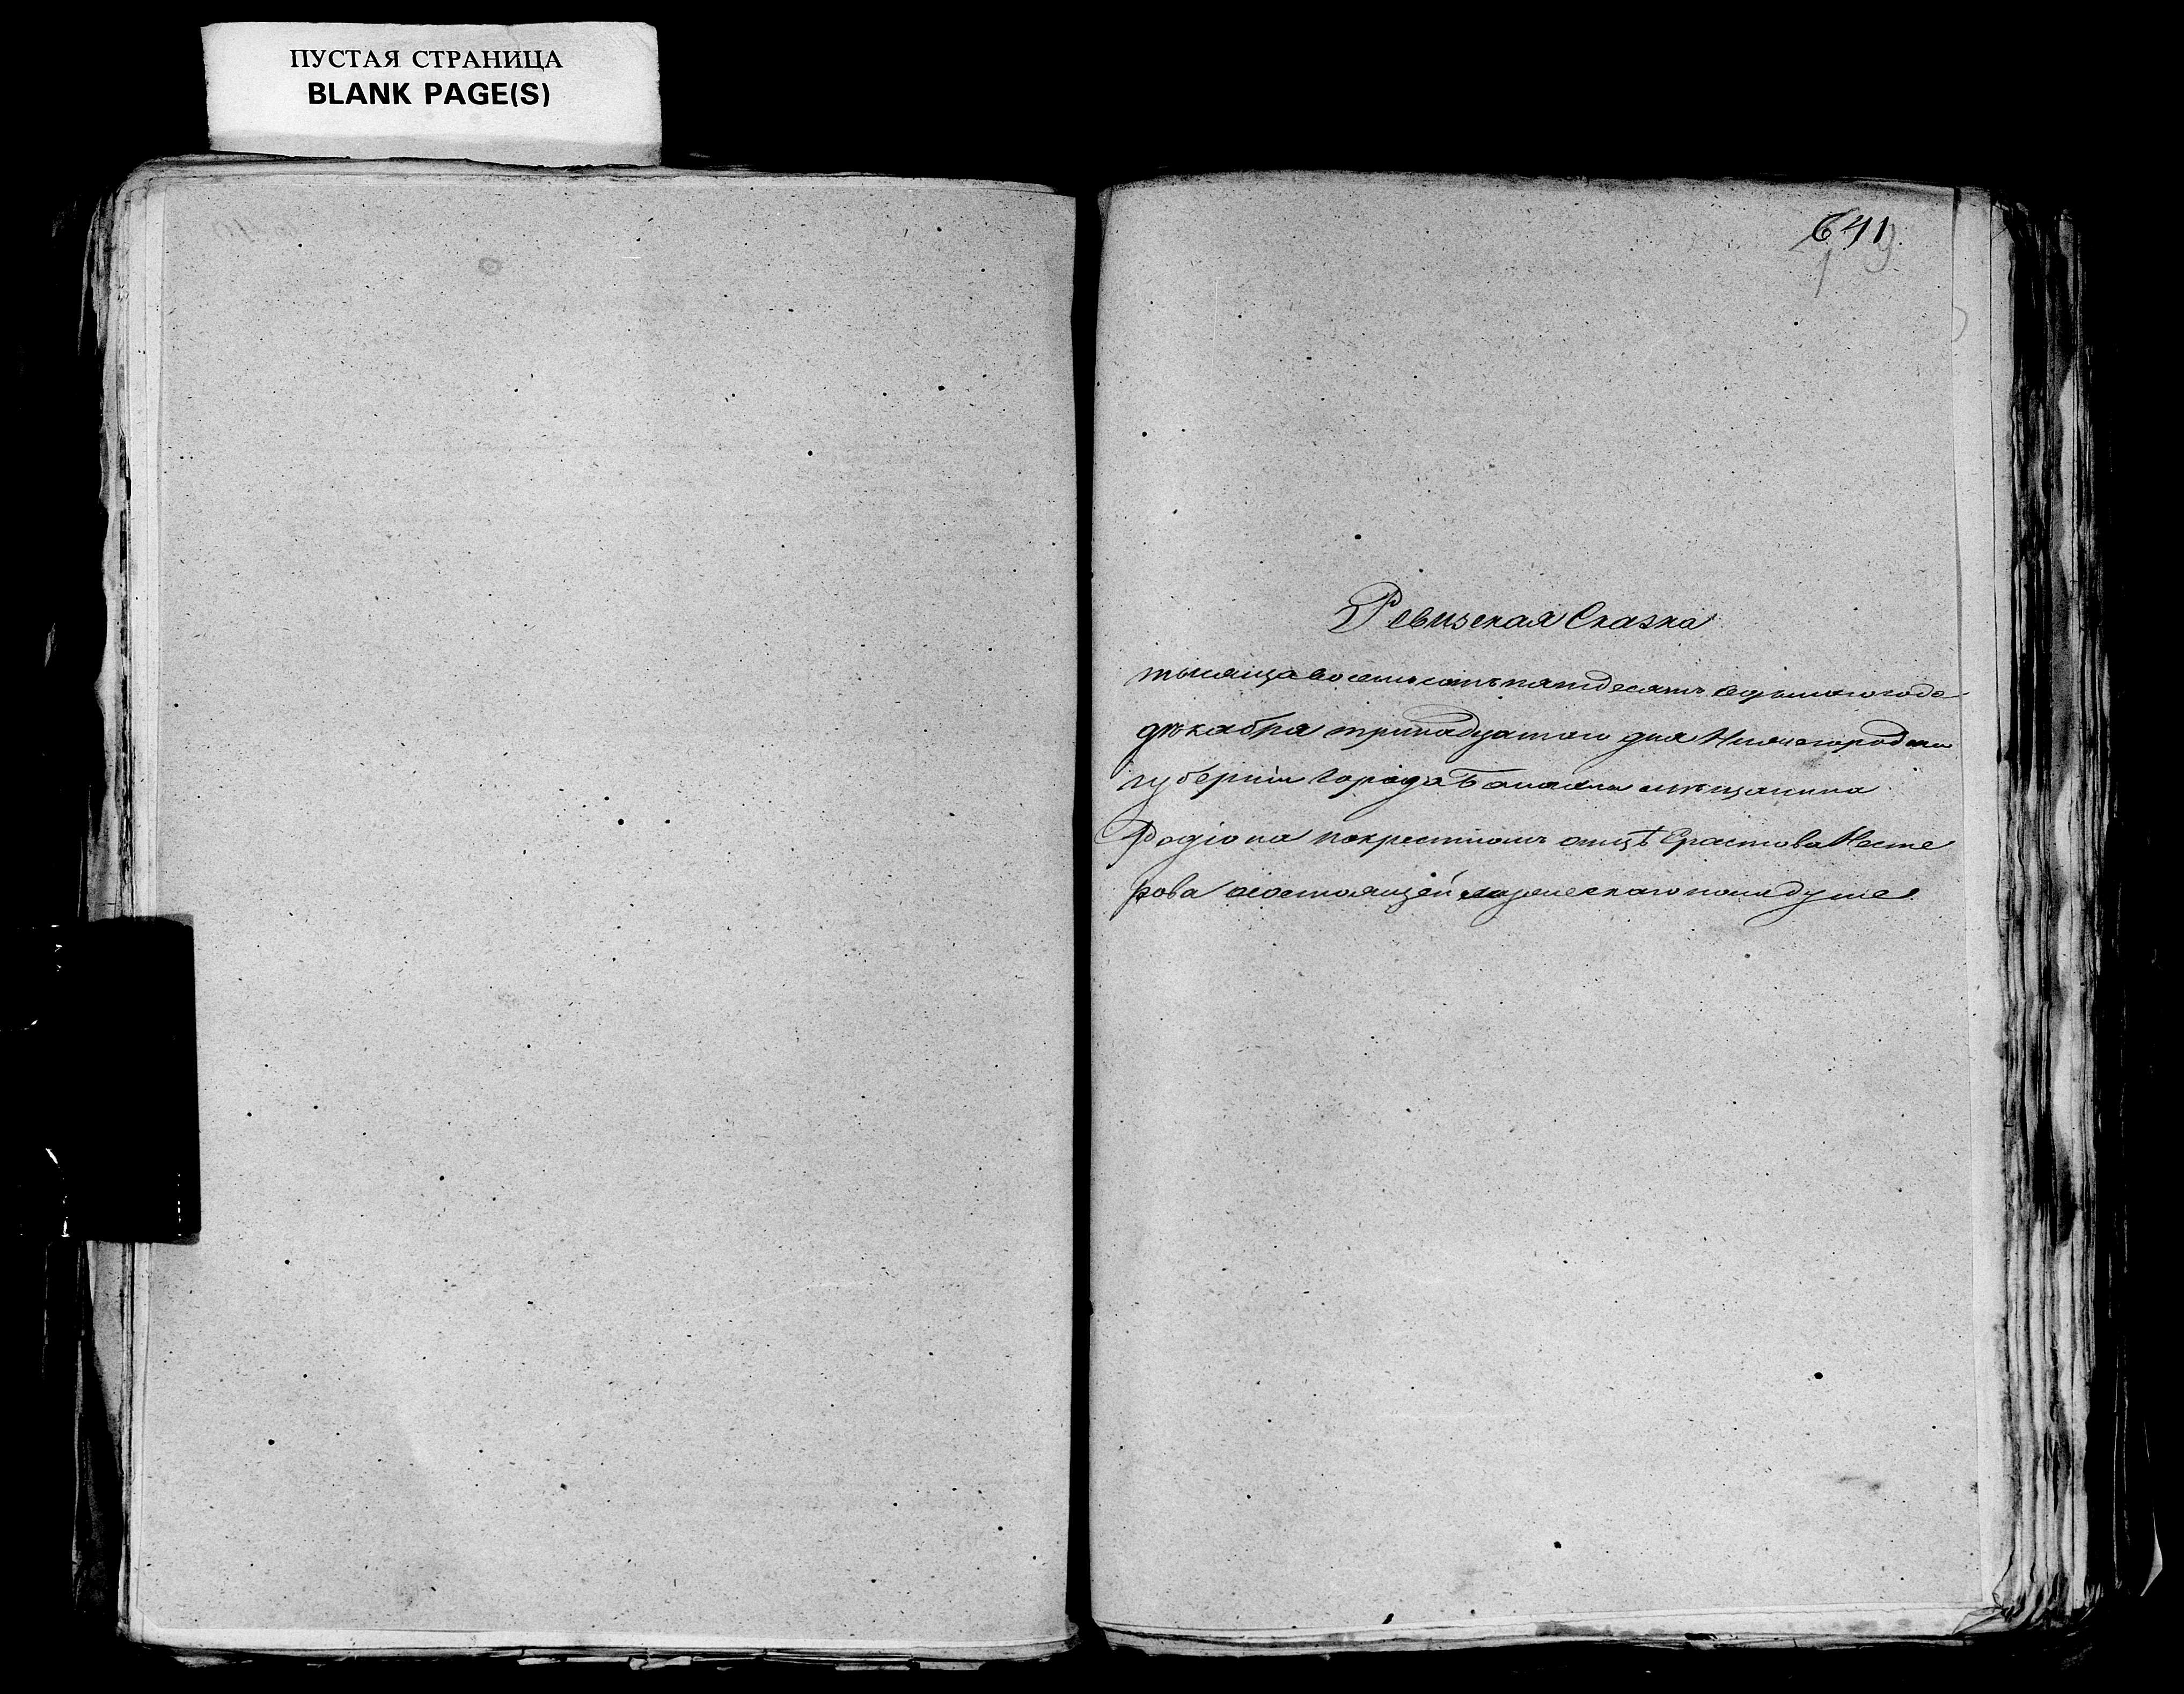 ПУСТАЯ СТРАНИЦА
BLANK PAGE(S)
641
Ревизская Сказка
тысяща восемьсотъ пятдесятъ
дѣкабря тринадцатаго дня Нижегородской
губерніи Города Балахны мѣщанина
Родіона покрестномъ отцѣ Ерастова Несте
рова состоящей мужескаго пола душе